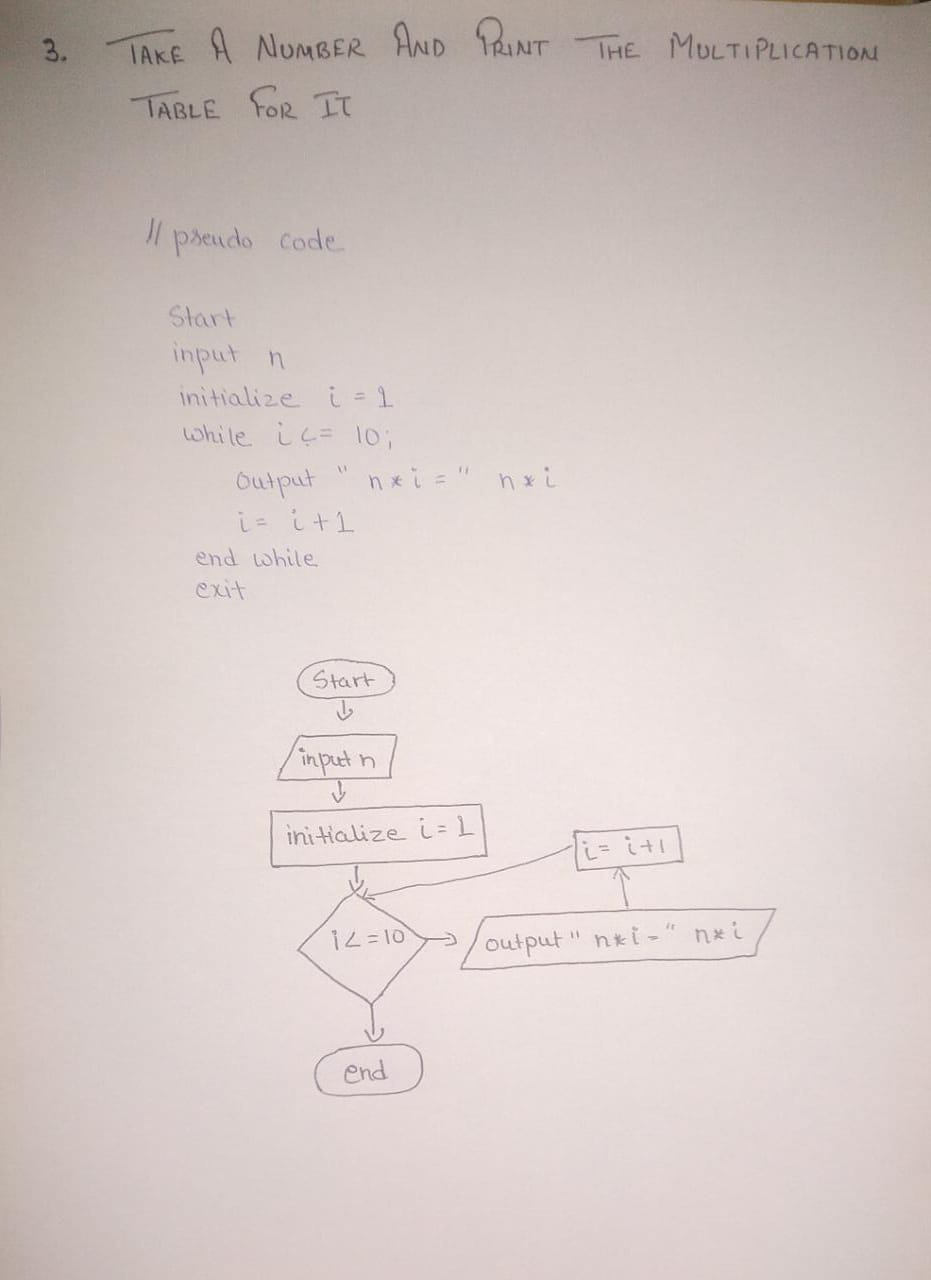 3. TAKE A NUMBER AND PRINT THE MULTIPLICATION
TABLE FOR IT
// pseudo code
Start
input n
initialize i = 1
while i <= 10;
output " n*i = " n*i
i = i+1
end while
exit
Start
input n
initialize i = 1
i = i+1
i <= 10
output " n*i = " n*i
end